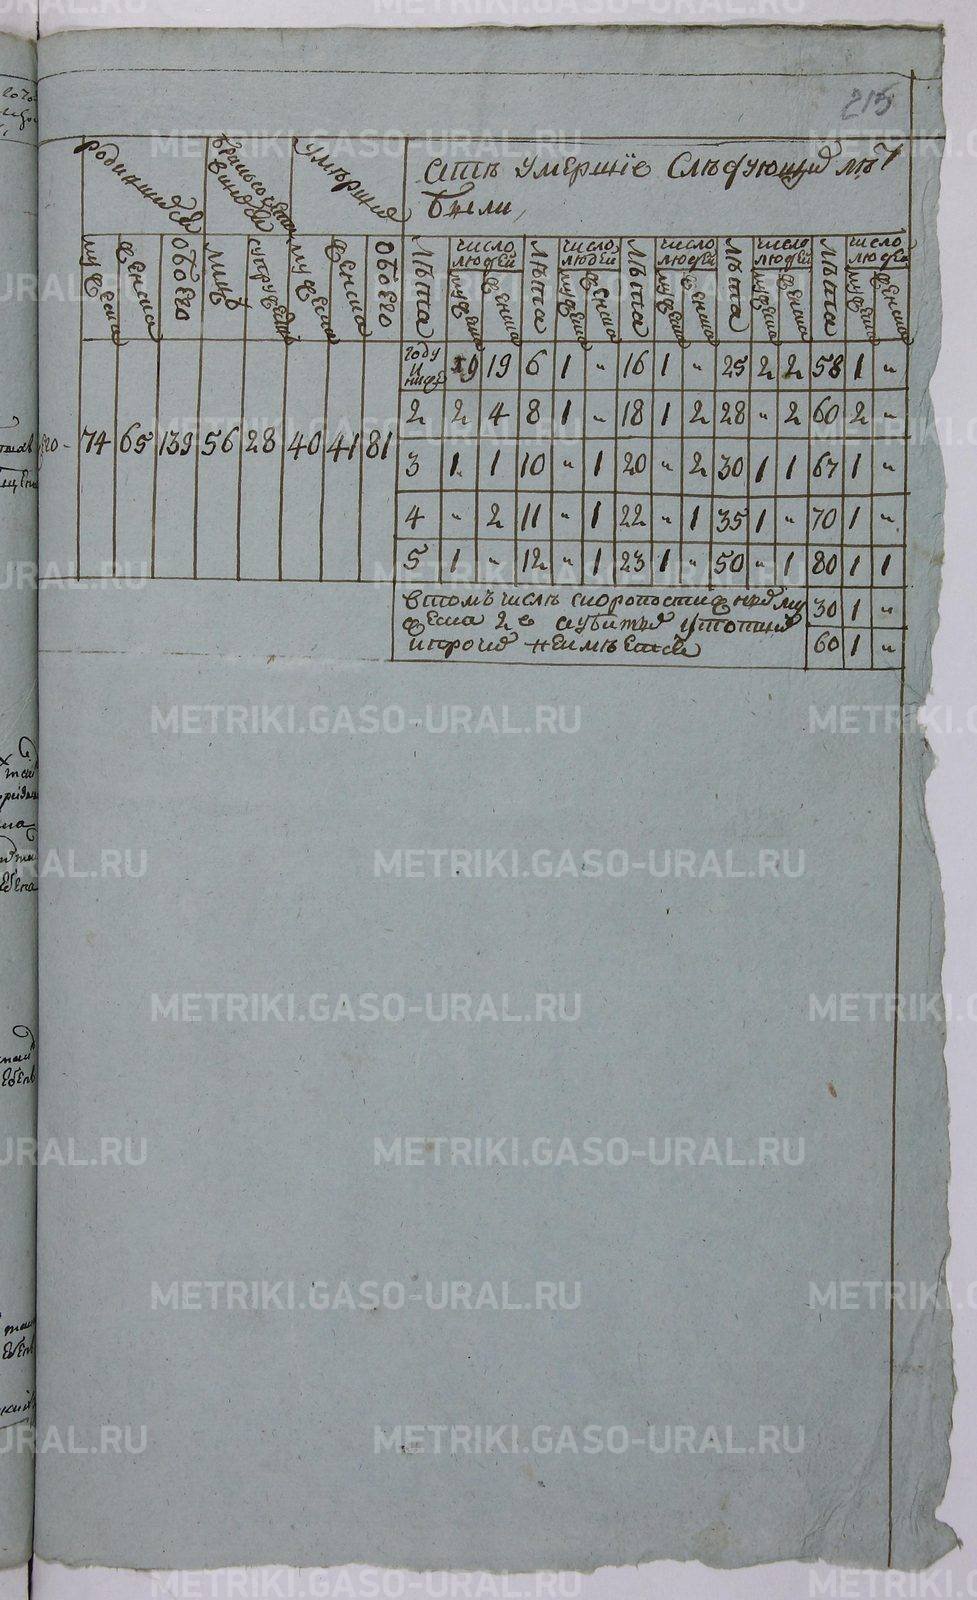 215
Родившихся
Бракосочетавшихся
Умерших
Отъ умершiе Слѣдующих лѣт
были
мужеска
женска
обоего
лиц
супружеств
мужеска
женска
обоего
Лѣта
число людей
мужеска
женска
Лѣта
число людей
мужеска
женска
Лѣта
число людей
мужеска
женска
Лѣта
число людей
мужеска
женска
Лѣта
число людей
мужеска
женска
году и ниже 19 19 6 1 „ 16 1 „ 25 2 2 58 1 „
2 2 4 8 1 „ 18 1 2 28 „ 2 60 2 „
74 65 139 56 28 40 41 81
3 1 1 10 „ 1 20 „ 2 30 1 1 67 1 „
4 „ 2 11 „ 1 22 „ 1 35 1 „ 70 1 „
5 1 „ 12 „ 1 23 1 „ 50 „ 1 80 1 1
втомъ числѣ скоропостижных му 30 1 „
жеска 2 е аубитых утопших
ипрочих неимѣется 60 1 „
METRIKI.GASO-URAL.RU